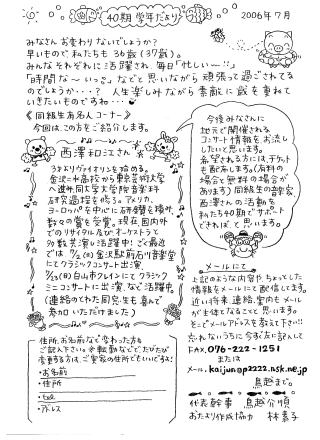 40期 学年だより
2006年7月
みなさんお変わりないでしょうか?
早いもので私たちも36歳(37歳)。
みんなそれぞれに活躍され、毎日「忙しい〜!!」
「時間な〜いっ。」などと思いながら頑張って過ごされてる
のでしょうか・・・? 人生楽しみながら素敵に歳を重ねて
いきたいものですね・・・
《同級生有名人コーナー》
今回は、この方をご紹介します。
西澤和江さん
3才よりヴァイオリンを始める。
金沢二水高校から東京芸術大学
へ進み、同大学大学院音楽科
研究過程を修る。アメリカ、
ヨーロッパを中心に研鑽を積み、
数々の賞を受賞。現在国内外
でのリサイタル及びオーケストラと
多数共演し活躍中。ご最近
では 金沢駅前石川音楽堂
にてクラシックコンサート出演。
白山市クレインにてクラシック
ミニコンサートに出演、など活躍中
(連絡のとれた同窓生も喜んで
参加いただけました)
今後みなさんに
地元で開催される
コンサート情報をお流し
したいと思います。
希望される方には、チケット
も配布します。(有料の
場合と無料の場合が
あります) 同級生の音楽家
西澤さんの活動を
私たち40期でサポート
できれば、と思います。
メールにて
上記のような内容や、ちょっとした
情報をメールにて配信してます。
近い将来、連絡、案内もメール
が主体となること思います。
そこでメールアドレスを教えて下さい!!
忘れないうちに今すぐ左に記して
FAX.076-222-1251
または
メール.kaijun@p2222.nsk.ne.jp
鳥越まで。
代表幹事 鳥越介順
おたより作成協力 林素子
住所、お名前など変わった方も
ご記入下さい。※転勤などでたびたび
変更する方は、ご実家の住所でもいいですヨ!
・お名前
・住所
・tel
・アドレス